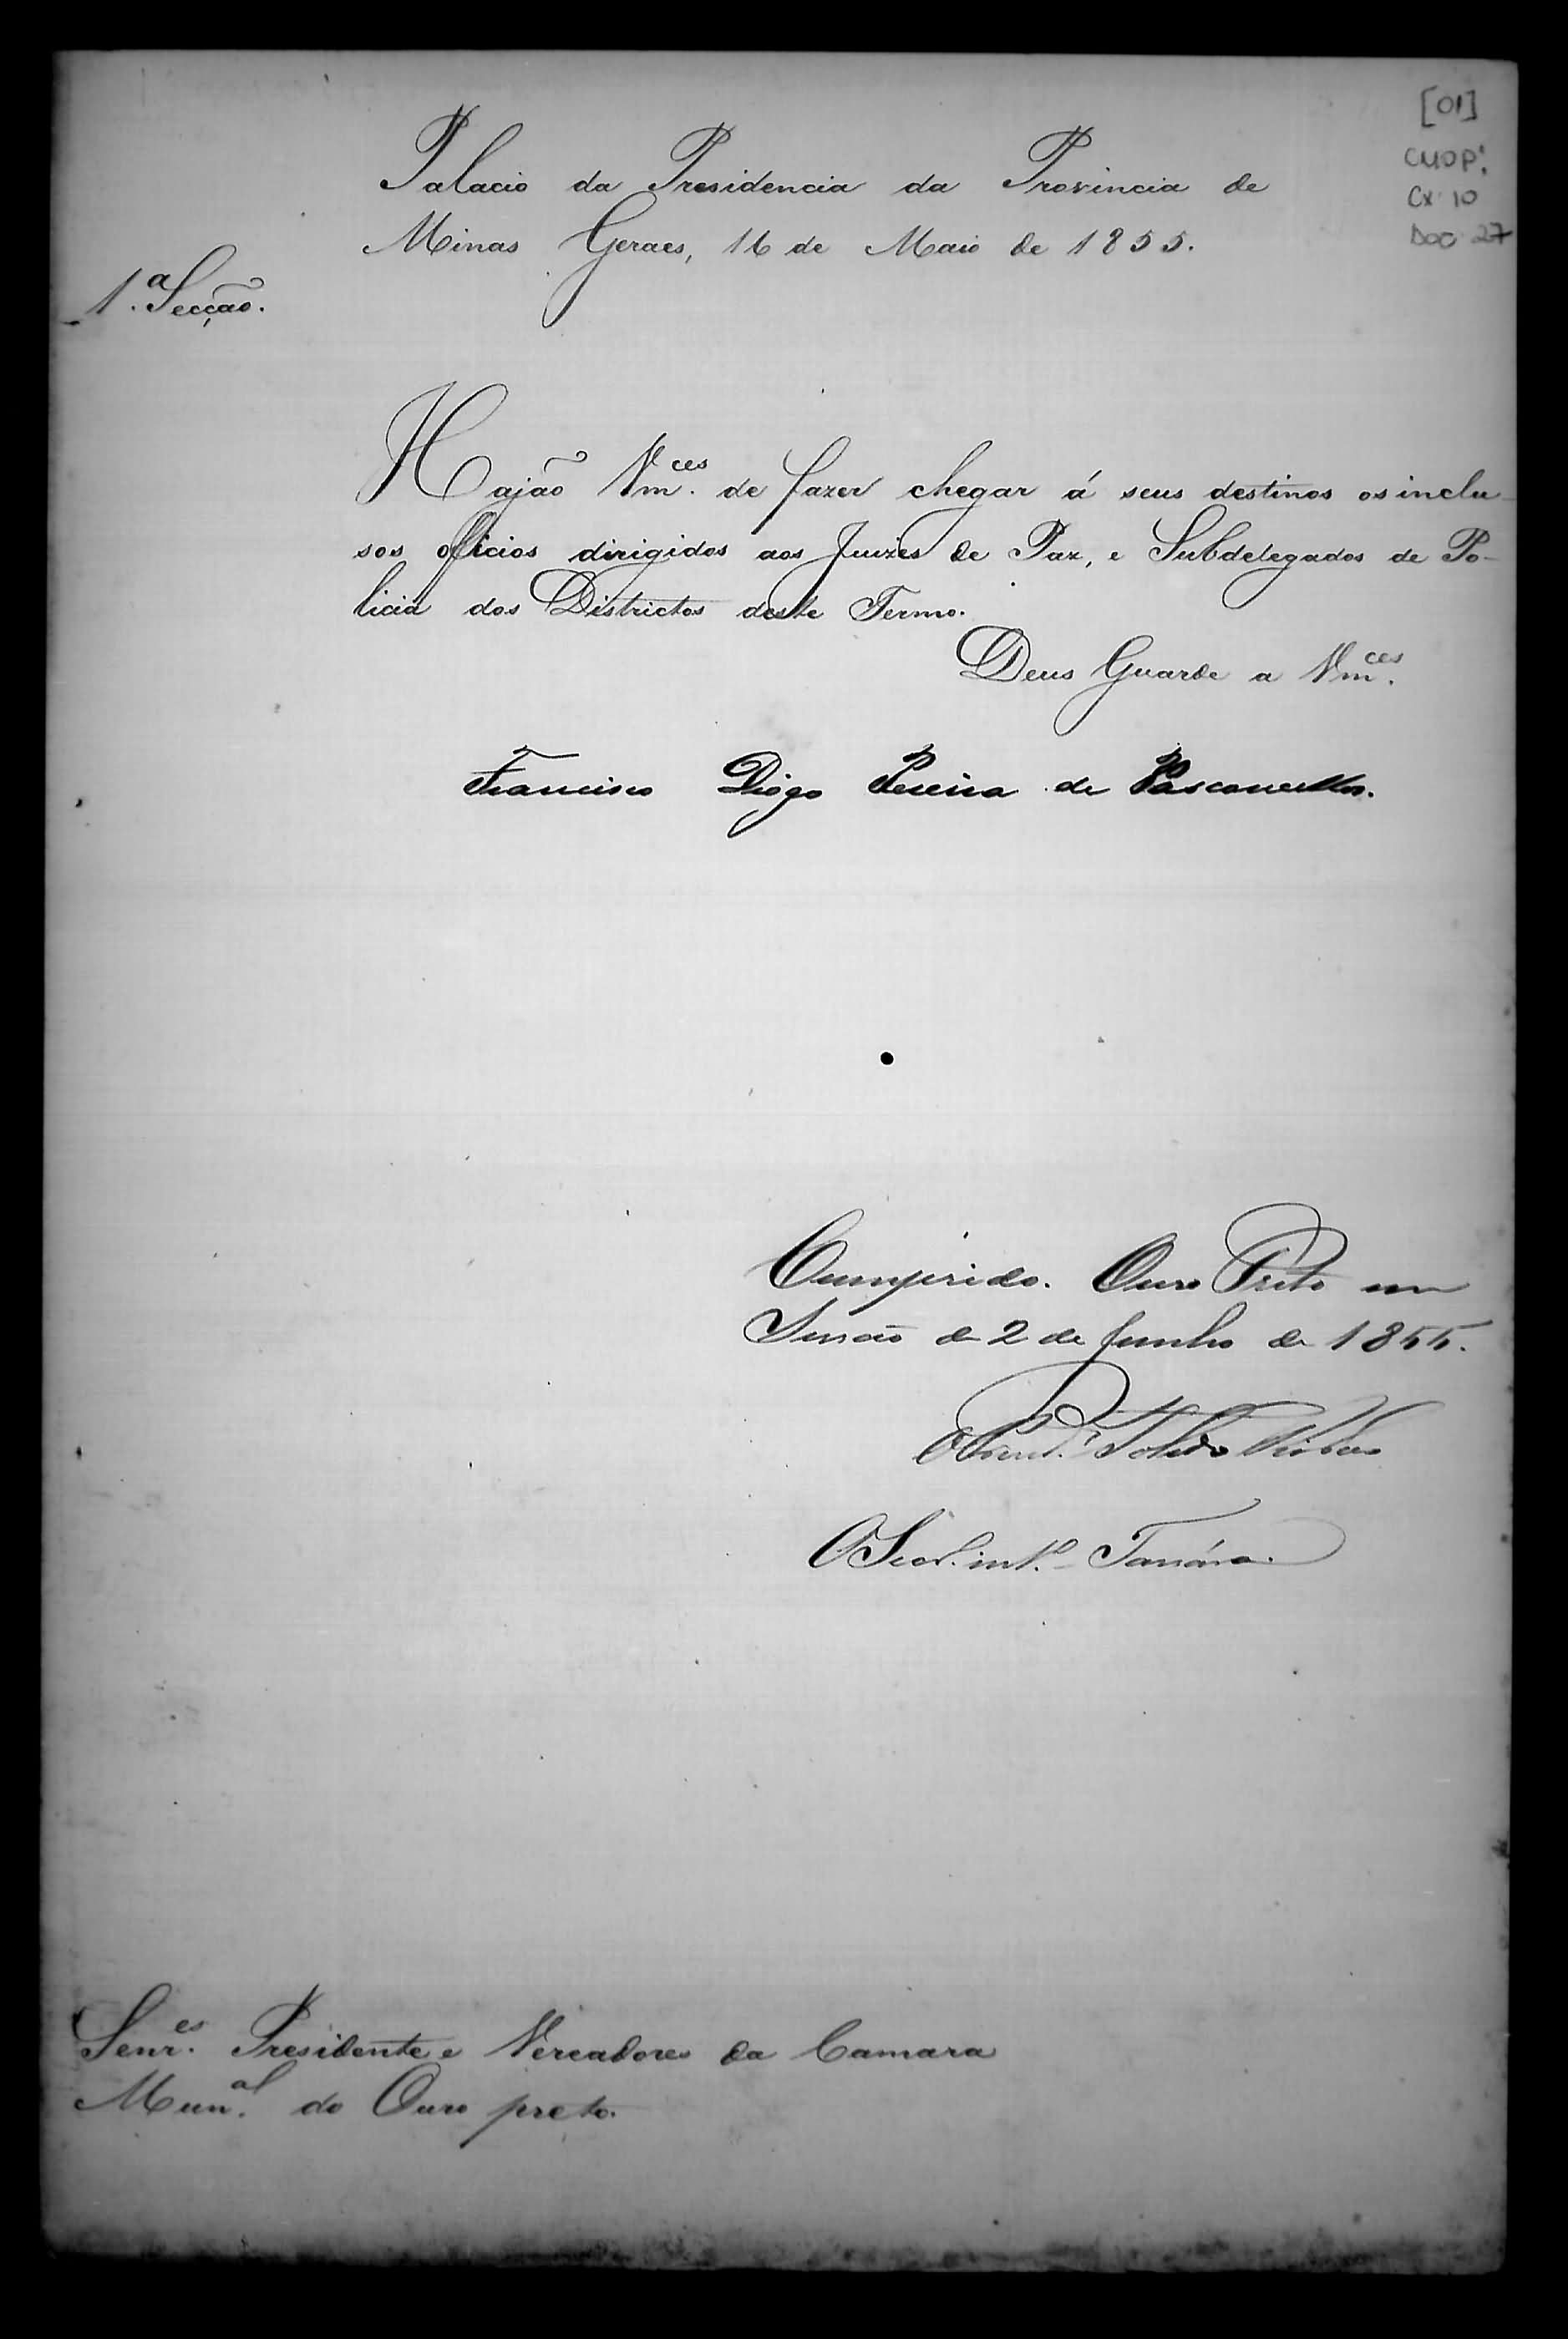 [01]
CMOP.
Cx 10
Doc 27
Palacio da Presidencia da Provincia de
Minas Geraes, 16 de Maio de 1855.
1.ª Secção.
Hajão Vm.ces de fazer chegar á seus destinos os inclu-
sos officios dirigidos aos Juizes de Paz, e Subdelegados de Po-
licia dos Districtos deste Termo.
Deus Guarde a Vm.ces
Francisco Diogo Pereira de Vasconcellos.
Cumprido. Ouro Preto em
Sessão de 2 de Junho de 1855.
Toledo Ribas
O Secr. int.º
Senr.es Presidente e Vereadores da Camara
Mun.al do Ouro preto.